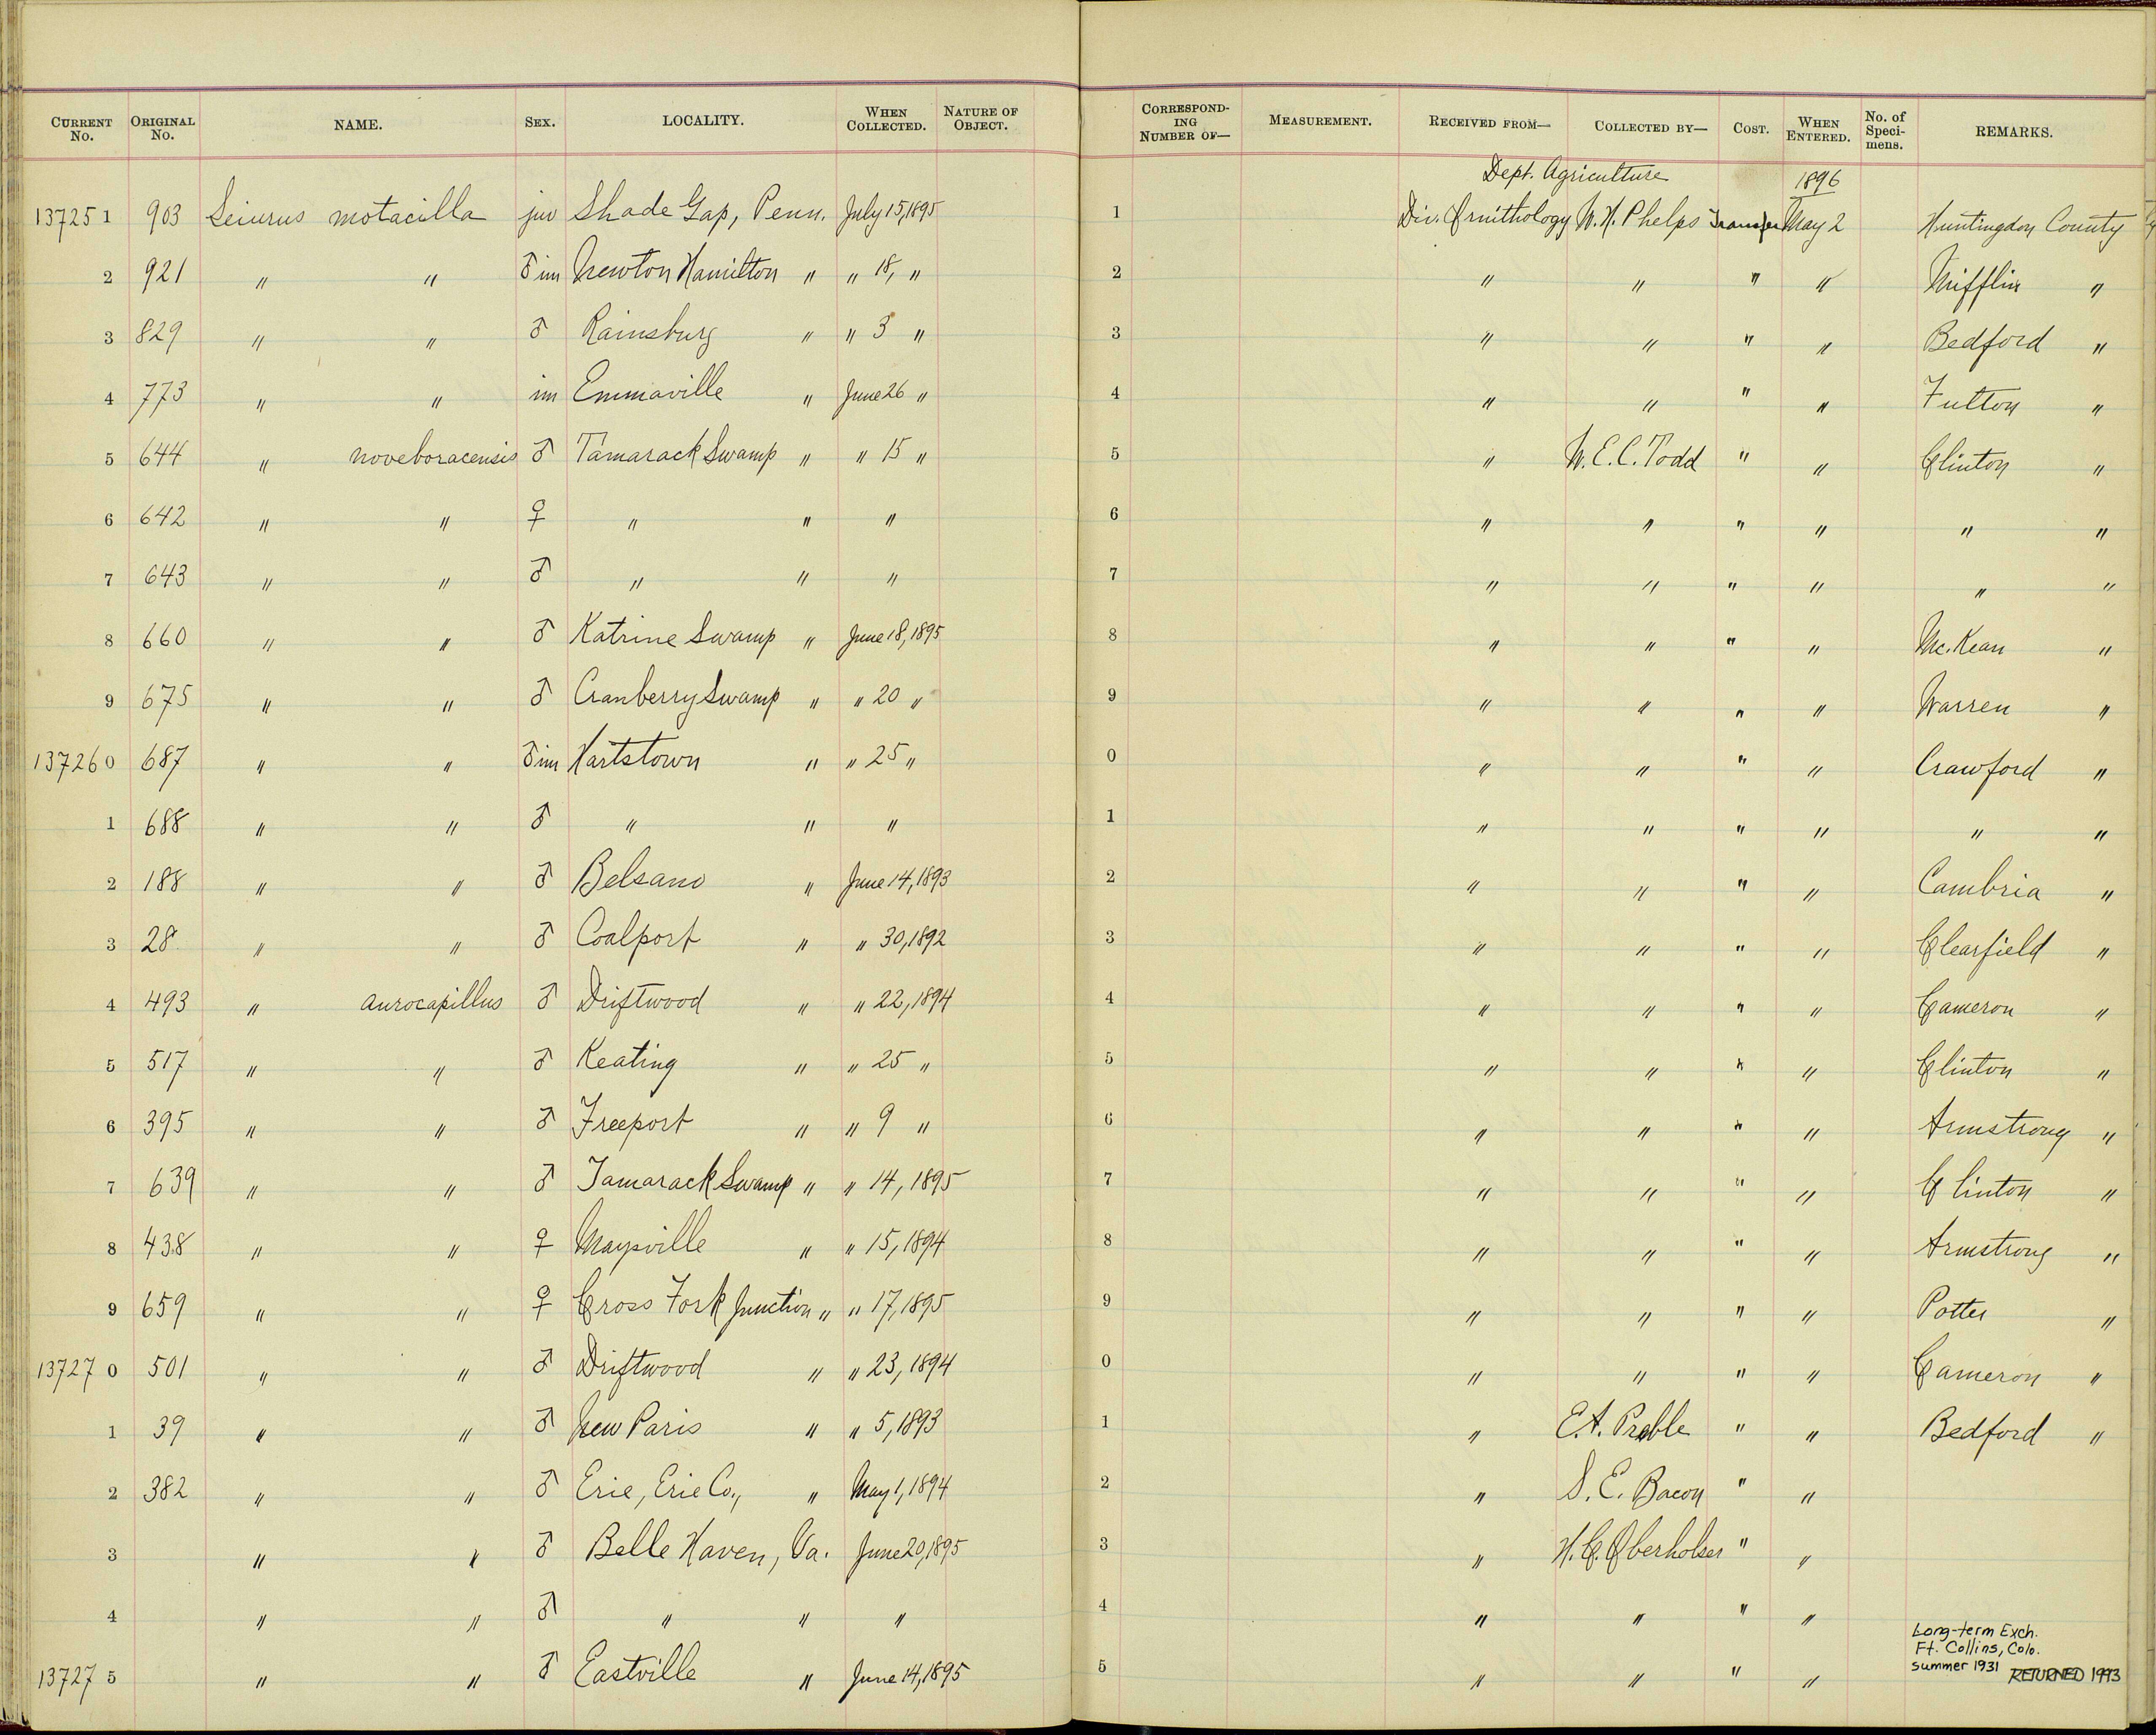 CURRENT No. ORIGINAL No. NAME. SEX. LOCALITY. WHEN COLLECTED. NATURE OF OBJECT. CORRESPONDING NUMBER OF— MEASUREMENT. RECEIVED FROM— COLLECTED BY— COST. WHEN ENTERED. No. of Specimens. REMARKS.
Dept. Agriculture 1896
137251 903 Seiurus motacilla juv Shade Gap, Penn. July 15, 1895 1 Div. Ornithology W. H. Phelps Transfer May 2 Huntingdon County
2 921 " " ♂ im Newton Hamilton " " 18, " 2 " " " " Mifflin "
3 829 " " ♂ Rainsburg " " 3 " 3 " " " " Bedford "
4 773 " " im Emmaville " June 26 " 4 " " " " Fulton "
5 644 " noveboracensis ♂ Tamarack Swamp " " 15 " 5 " W. E. C. Todd " " Clinton "
6 642 " " ♀ " " " 6 " " " " " "
7 643 " " ♂ " " " 7 " " " " " "
8 660 " " ♂ Katrine Swamp " June 18, 1895 8 " " " " Mc.Kean "
9 675 " " ♂ Cranberry Swamp " " 20 " 9 " " " " Warren "
137260 687 " " ♂ im Hartstown " " 25 " 0 " " " " Crawford "
1 688 " " ♂ " " " 1 " " " " " "
2 188 " " ♂ Belsano " June 14, 1893 2 " " " " Cambria "
3 28 " " ♂ Coalport " " 30, 1892 3 " " " " Clearfield "
4 493 " aurocapillus ♂ Driftwood " " 22, 1894 4 " " " " Cameron "
5 517 " " ♂ Keating " " 25 " 5 " " " " Clinton "
6 395 " " ♂ Freeport " " 9 " 6 " " " " Armstrong "
7 639 " " ♂ Tamarack Swamp " " 14, 1895 7 " " " " Clinton "
8 438 " " ♀ Maysville " " 15, 1894 8 " " " " Armstrong "
9 659 " " ♀ Cross Fork Junction " " 17, 1895 9 " " " " Potter "
137270 501 " " ♂ Driftwood " " 23, 1894 0 " " " " Cameron "
1 39 " " ♂ New Paris " " 5, 1893 1 " E. A. Preble " " Bedford "
2 382 " " ♂ Erie, Erie Co., " May 1, 1894 2 " S. E. Bacon " "
3 " " ♂ Belle Haven, Va. June 20, 1895 3 " H. C. Oberholser " "
4 " " ♂ " " " 4 " " " "
137275 " " ♂ Eastville " June 14, 1895 5 " " " " Long-term Exch.
Ft. Collins, Colo.
summer 1931 RETURNED 1993